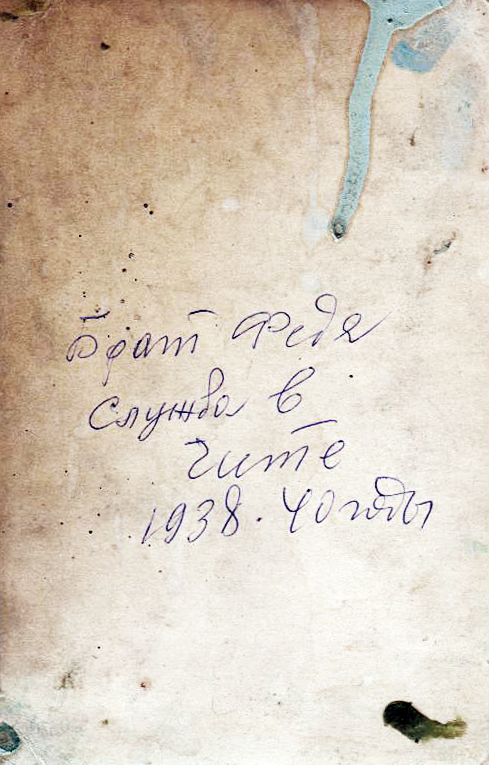 Брат Федя
служба в
Чите
1938. 40 годы